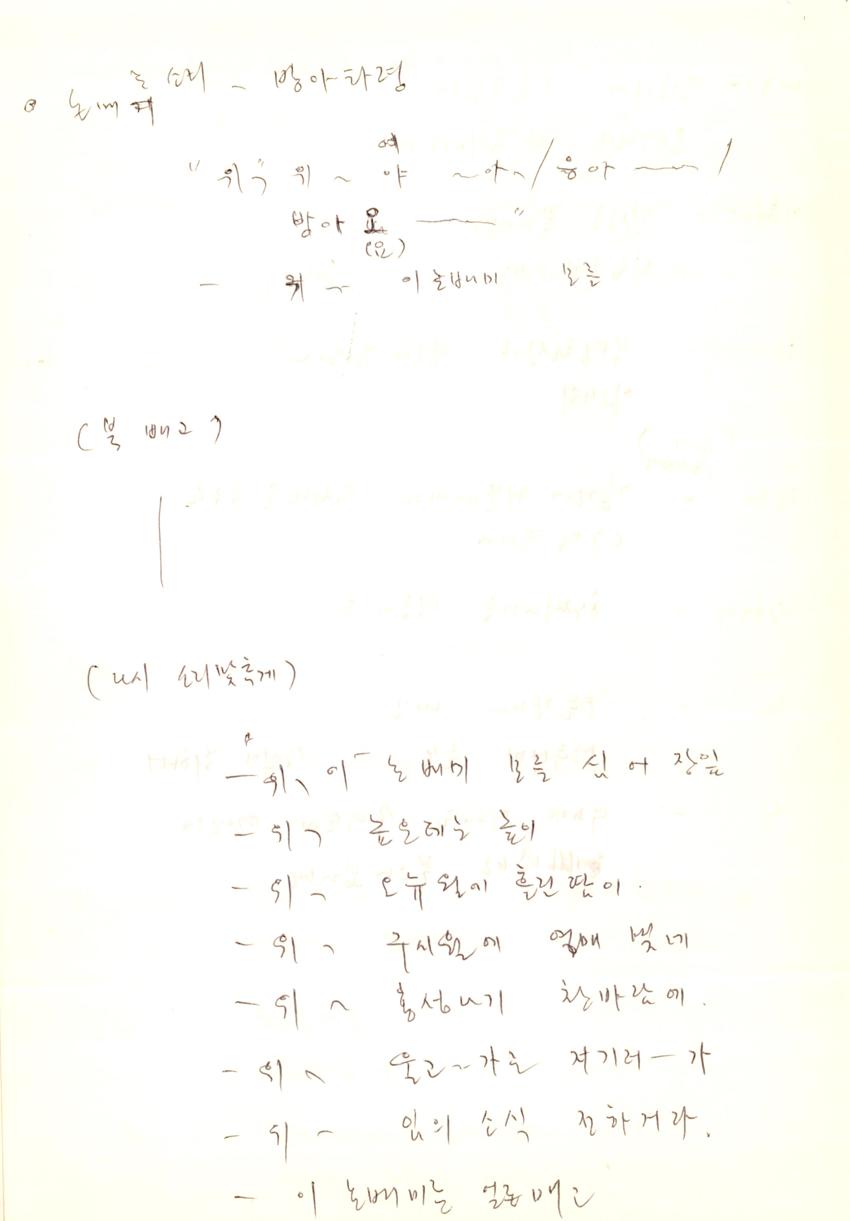 논매는 소리 ~ 방아타령
"위~" 위 ~ 야 ~아~/응아 —— /
여
방아 요 ——"
(요)
- 위 ~ 이 논배미 모를
(북 배고)
(다시 소리맞추게)
- 위~ 이 논배미 모를 심어 장잎
- 위~ 높은데는 높이
- 위~ 오뉴월에 흘린땀이.
- 위~ 구시월에 열매 맺네
- 위~ 홍성나기 찬바람에.
- 위~ 울고~가는 저기러—가
- 위~ 임의 소식 전하거라.
- 이 논배미를 얼른매고